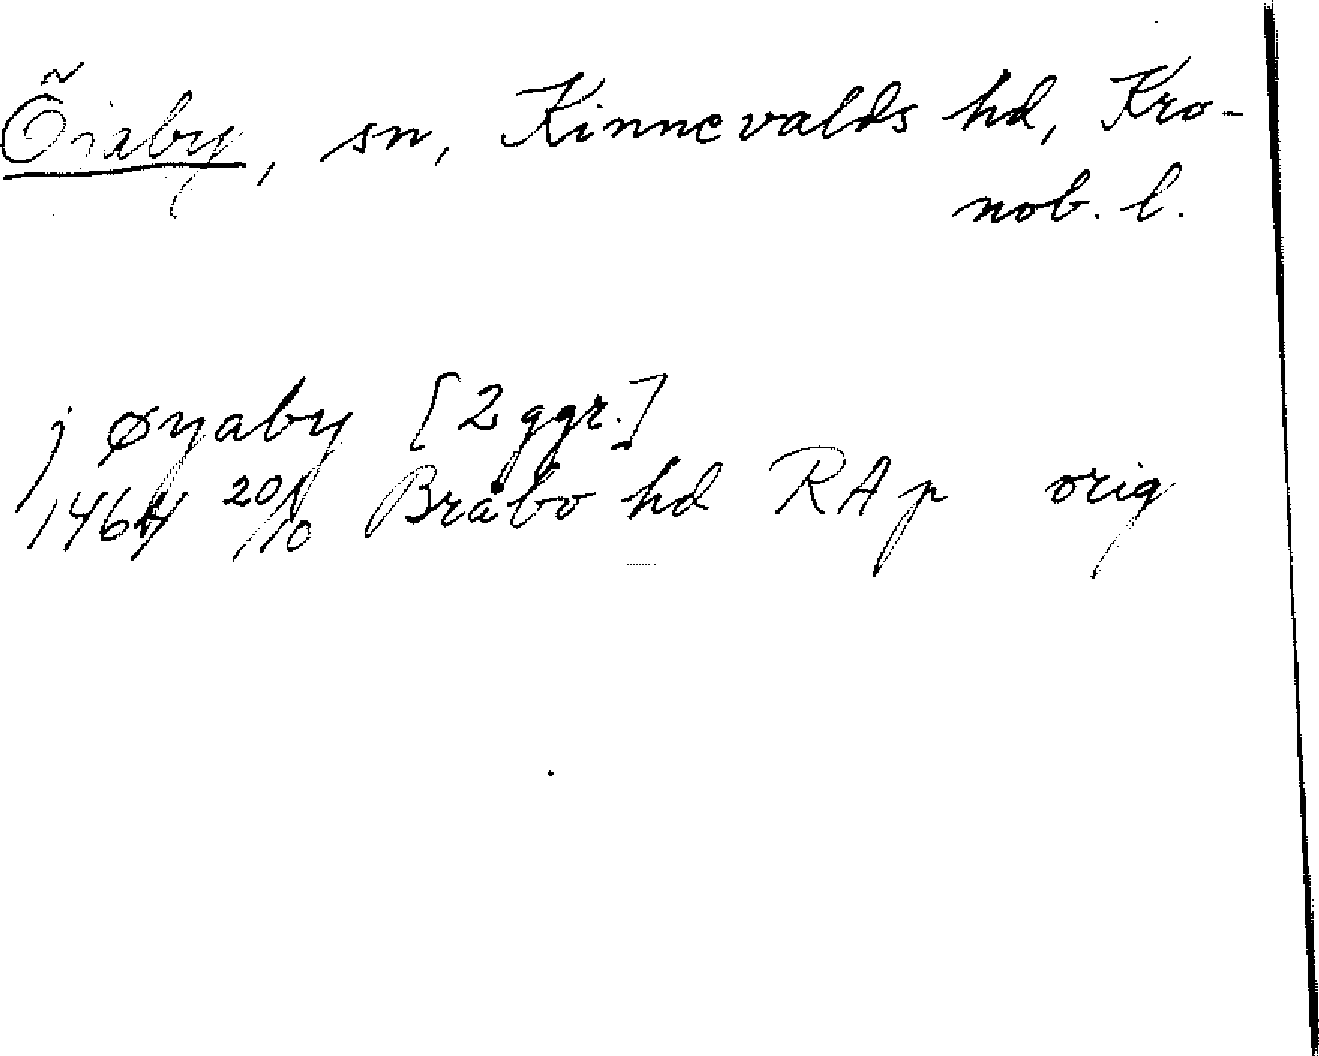 Öjaby, sn, Kinnevalds hd, Kro-
nob. l.
j øyaby [2 ggr.]
1464 20/10 Bråbo hd RAp orig